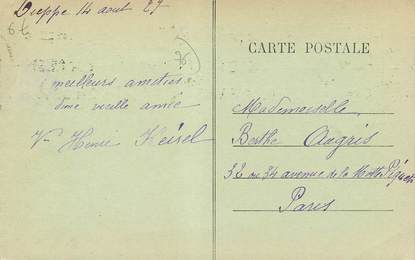 Dieppe 14 aout 27
66
76
meilleurs amitiés
d'une vieille amie
Vve Henri Keisel
CARTE POSTALE
Mademoiselle
Berthe Augris
32 ou 34 avenue de la Motte Piquet
Paris